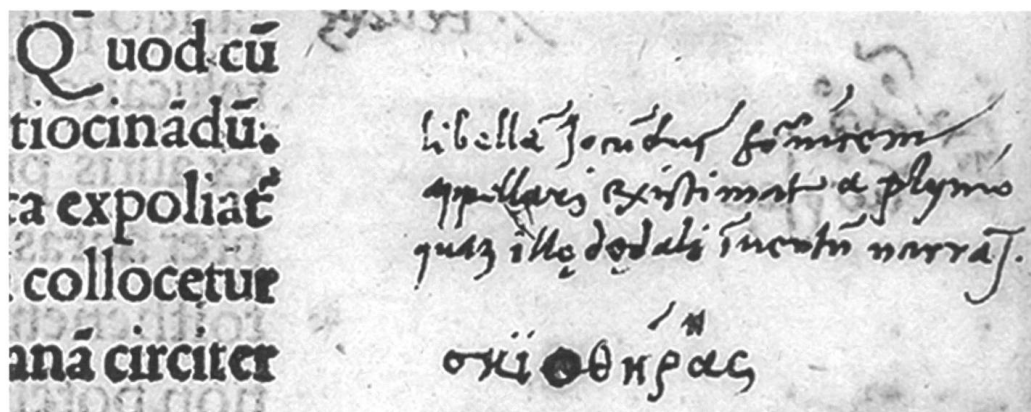 Quod cū
tiocinādū.
a expoliat̄
collocetur
anā circiter
libellā Jocūdus
appellari existimat a plynio
quaz illę dędali īuentū
σκϊοθήρας